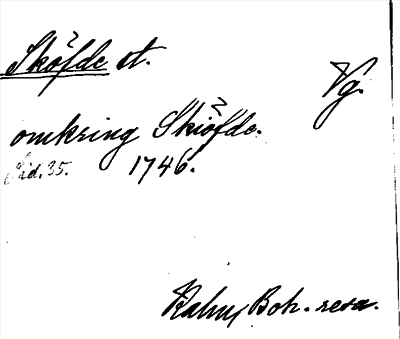 Sköfde st.
Vg.
omkring Skiöfde.
Sid. 35. 1746.
Kalm, Boh. resa.